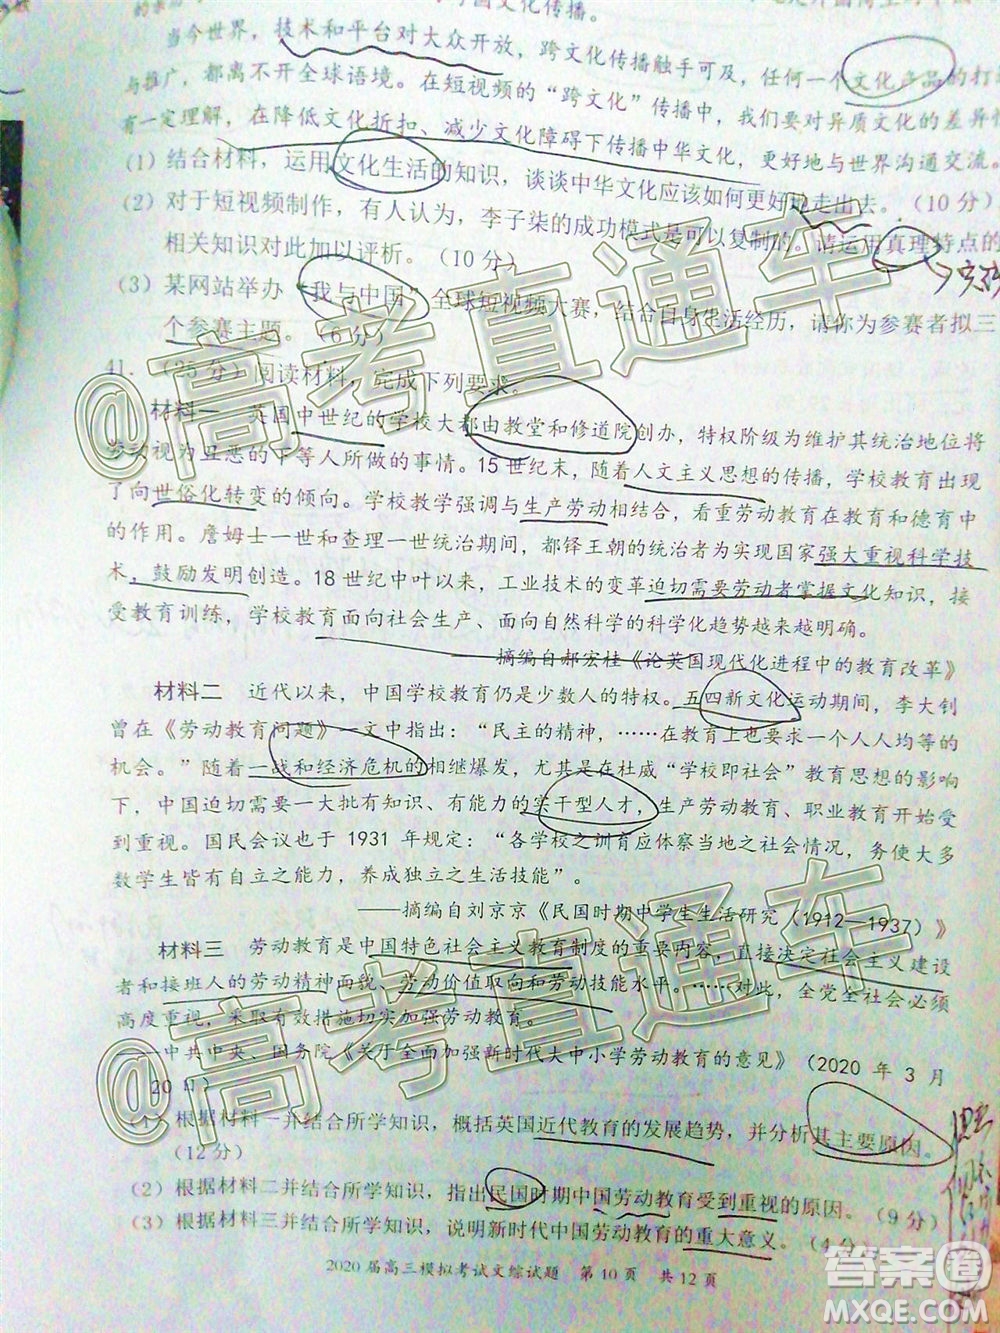 国文化传播。
当今世界，技术和平台对大众开放，跨文化传播触手可及，任何一个文化产品的打
与推广，都离不开全球语境。在短视频的“跨文化”传播中，我们要对异质文化的差异性
有一定理解，在降低文化折扣、减少文化障碍下传播中华文化，更好地与世界沟通交流。
(1) 结合材料，运用文化生活的知识，谈谈中华文化应该如何更好地走出去。(10 分)
(2) 对于短视频制作，有人认为，李子柒的成功模式是可以复制的。请运用真理特点的
相关知识对此加以评析。(10 分)
(3) 某网站举办“我与中国”全球短视频大赛，结合自身生活经历，请你为参赛者拟三
个参赛主题。(6 分)
41. (25 分) 阅读材料，完成下列要求。
材料一　英国中世纪的学校大都由教堂和修道院创办，特权阶级为维护其统治地位将
劳动视为丑恶的下等人所做的事情。15 世纪末，随着人文主义思想的传播，学校教育出现
了向世俗化转变的倾向。学校教学强调与生产劳动相结合，看重劳动教育在教育和德育中
的作用。詹姆士一世和查理一世统治期间，都铎王朝的统治者为实现国家强大重视科学技
术，鼓励发明创造。18 世纪中叶以来，工业技术的变革迫切需要劳动者掌握文化知识，接
受教育训练，学校教育面向社会生产、面向自然科学的科学化趋势越来越明确。
——摘编自郝宏桂《论英国现代化进程中的教育改革》
材料二　近代以来，中国学校教育仍是少数人的特权。五四新文化运动期间，李大钊
曾在《劳动教育问题》一文中指出：“民主的精神，……在教育上也要求一个人人均等的
机会。”随着一战和经济危机的相继爆发，尤其是在杜威“学校即社会”教育思想的影响
下，中国迫切需要一大批有知识、有能力的实干型人才，生产劳动教育、职业教育开始受
到重视。国民会议也于 1931 年规定：“各学校之训育应体察当地之社会情况，务使大多
数学生皆有自立之能力，养成独立之生活技能”。
——摘编自刘京京《民国时期中学生生活研究（1912—1937）》
材料三　劳动教育是中国特色社会主义教育制度的重要内容，直接决定社会主义建设
者和接班人的劳动精神面貌、劳动价值取向和劳动技能水平。……对此，全党全社会必须
高度重视，采取有效措施切实加强劳动教育。
——中共中央、国务院《关于全面加强新时代大中小学劳动教育的意见》（2020 年 3 月
20 日）
(1) 根据材料一并结合所学知识，概括英国近代教育的发展趋势，并分析其主要原因。
(12 分)
(2) 根据材料二并结合所学知识，指出民国时期中国劳动教育受到重视的原因。(9 分)
(3) 根据材料三并结合所学知识，说明新时代中国劳动教育的重大意义。(4 分)
2020 届高三模拟考试文综试题　第 10 页　共 12 页
@高考直通车
@高考直通车
答案圈
MXQE.COM